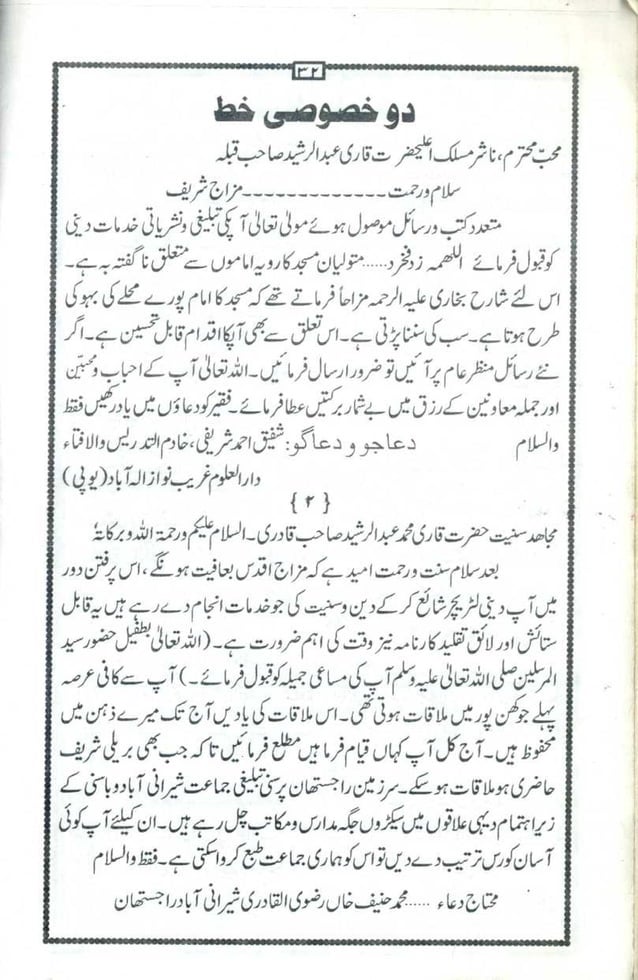 ۳۲
دو خصوصی خط
محبّ محترم، ناشر مسلک اعلیحضرت قاری عبدالرشید صاحب قبلہ
سلام ورحمت ------------- مزاج شریف
متعدد کتب ورسائل موصول ہوئے مولیٰ تعالیٰ آپکی تبلیغی ونشریاتی خدمات دینی
کو قبول فرمائے اللھمہ زد فخرد..... متولیان مسجد کا رویہ اماموں سے متعلق ناگفتہ بہ ہے۔
اس لئے شارح بخاری علیہ الرحمہ مزاحاً فرماتے تھے کہ مسجد کا امام پورے محلے کی بہو کی
طرح ہوتا ہے۔ سب کی سننا پڑتی ہے۔ اس تعلق سے بھی آپکا اقدام قابل تحسین ہے۔ اگر
نئے رسائل منظر عام پر آئیں تو ضرور ارسال فرمائیں۔ اللہ تعالیٰ آپ کے احباب ومحبّین
اور جملہ معاونین کے رزق میں بے شمار برکتیں عطا فرمائے۔ فقیر کو دعاؤں میں یاد رکھیں فقط
والسلام دعاجو و دعاگو: شفیق احمد شریفی، خادم التدریس والافتاء
دارالعلوم غریب نواز الہ آباد (یوپی)
{ ۲ }
مجاھد سنیت حضرت قاری محمد عبدالرشید صاحب قادری۔ السلام علیکم ورحمۃ اللہ وبرکاتہٗ
بعد سلام سنت ورحمت امید ہے کہ مزاج اقدس بعافیت ہونگے، اس پرفتن دور
میں آپ دینی لٹریچر شائع کرکے دین وسنیت کی جو خدمات انجام دے رہے ہیں یہ قابل
ستائش اور لائق تقلید کارنامہ نیز وقت کی اہم ضرورت ہے۔ (اللہ تعالیٰ بطفیل حضور سید
المرسلین صلی اللہ تعالیٰ علیہ وسلم آپ کی مساعی جمیلہ کو قبول فرمائے۔) آپ سے کافی عرصہ
پہلے جوکھن پور میں ملاقات ہوتی تھی۔ اس ملاقات کی یادیں آج تک میرے ذہن میں
محفوظ ہیں۔ آج کل آپ کہاں قیام فرما ہیں مطلع فرمائیں تاکہ جب بھی بریلی شریف
حاضری ہو ملاقات ہوسکے۔ سرزمین راجستھان پر سنی تبلیغی جماعت شیرانی آباد وباسنی کے
زیر اہتمام دیہی علاقوں میں سیکڑوں جگہ مدارس ومکاتب چل رہے ہیں۔ ان کیلئے آپ کوئی
آسان کورس ترتیب دے دیں تو اس کو ہماری جماعت طبع کرواسکتی ہے۔ فقط والسلام
محتاج دعاء ...... محمد حنیف خاں رضوی القادری شیرانی آباد راجستھان